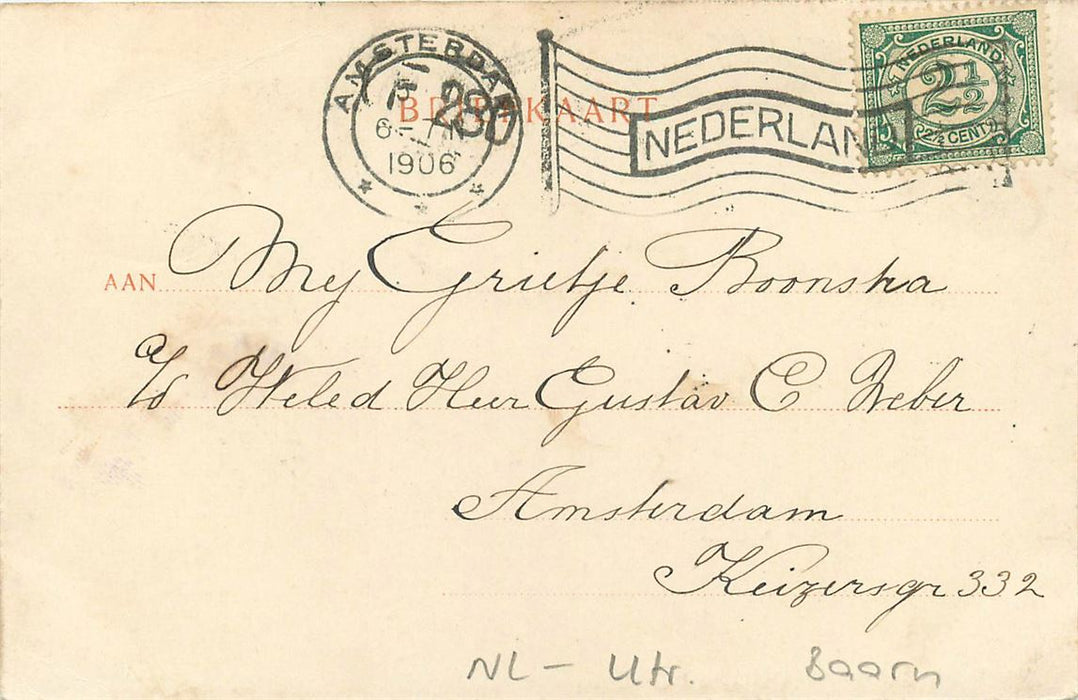 AMSTERDAM
1906
BRIEFKAART
NEDERLAND
NEDERLAND
2½
2½ CENT
AAN Mej Grietje Boonstra
c/o Weled Heer Gustav C Weber
Amsterdam
Keizersgr 332
NL - Utr. Baarn